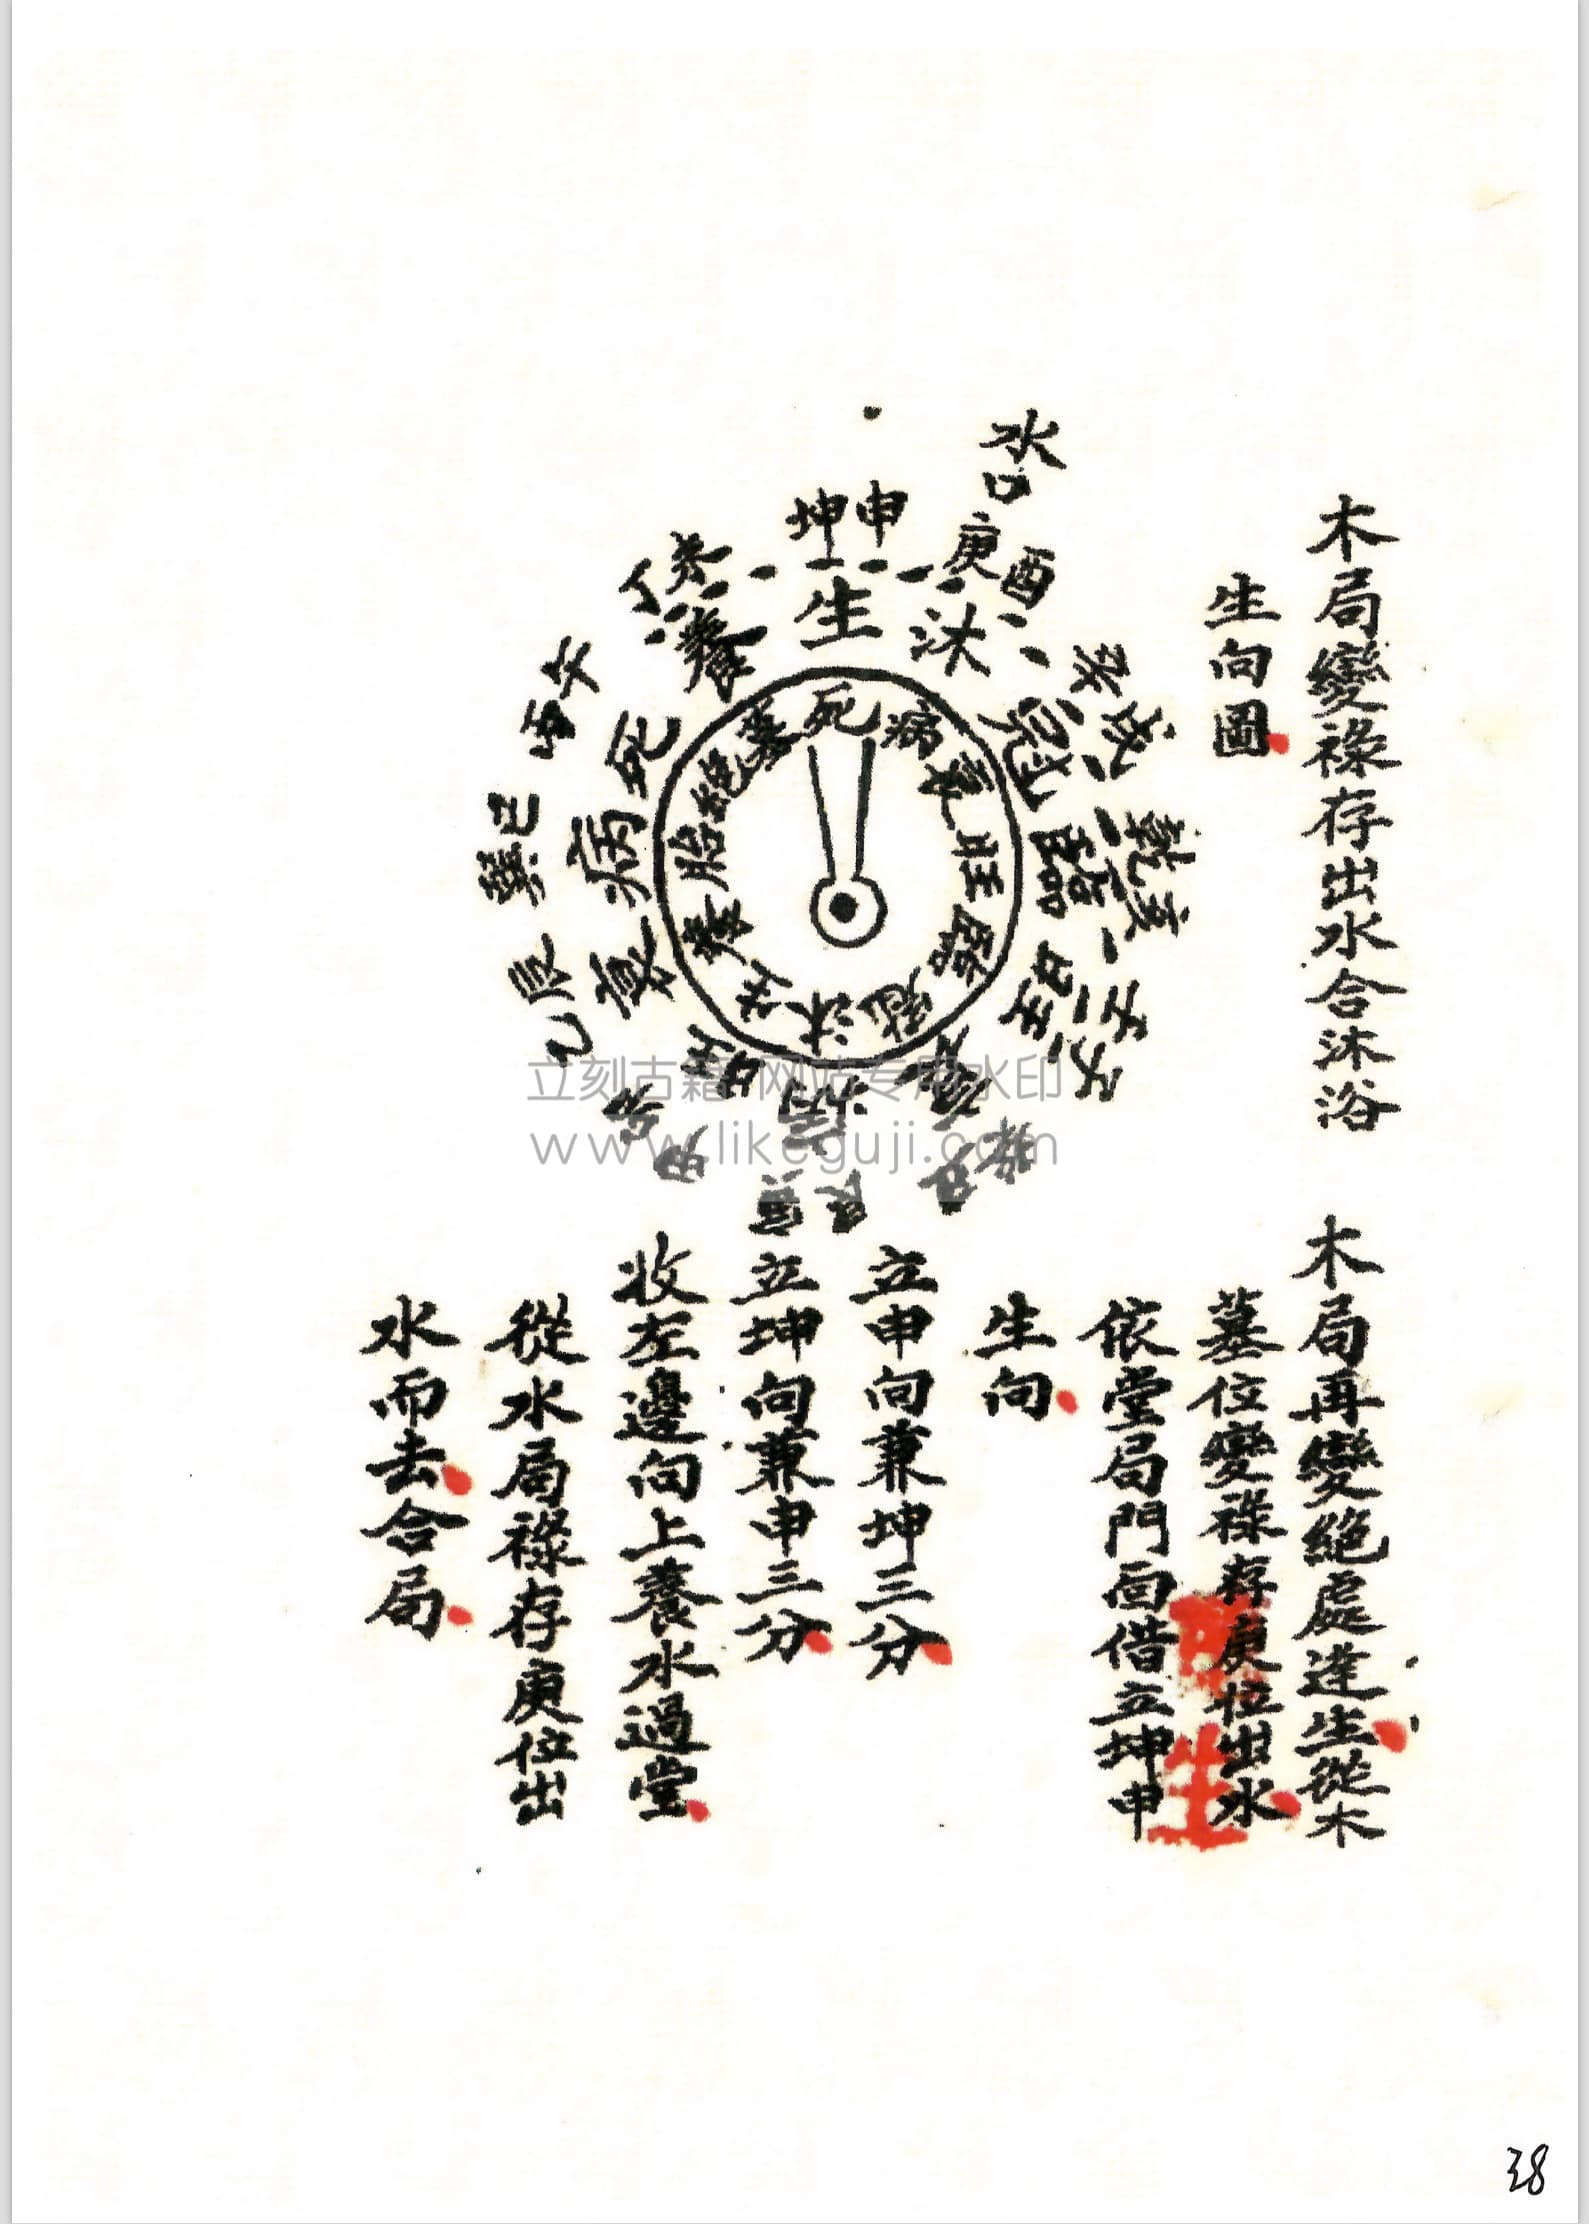 木局變祿存出水合沐浴
生向圖
水口
坤申
庚酉
辛戌
乾亥
壬子
癸丑
艮寅
甲卯
乙辰
巽巳
丙午
丁未
生
沐
冠
臨
旺
衰
病
死
養
死
病
衰
旺
臨
冠
沐
生
養
胎
絕
墓
木局再變絕處逢生從木
墓位變祿存庚位出水
依堂局門面借立坤申
生向
立申向兼坤三分
立坤向兼申三分
收左邊向上養水過堂
從水局祿存庚位出
水而去合局
立刻古籍 网站专用水印
www.likeguji.com
38